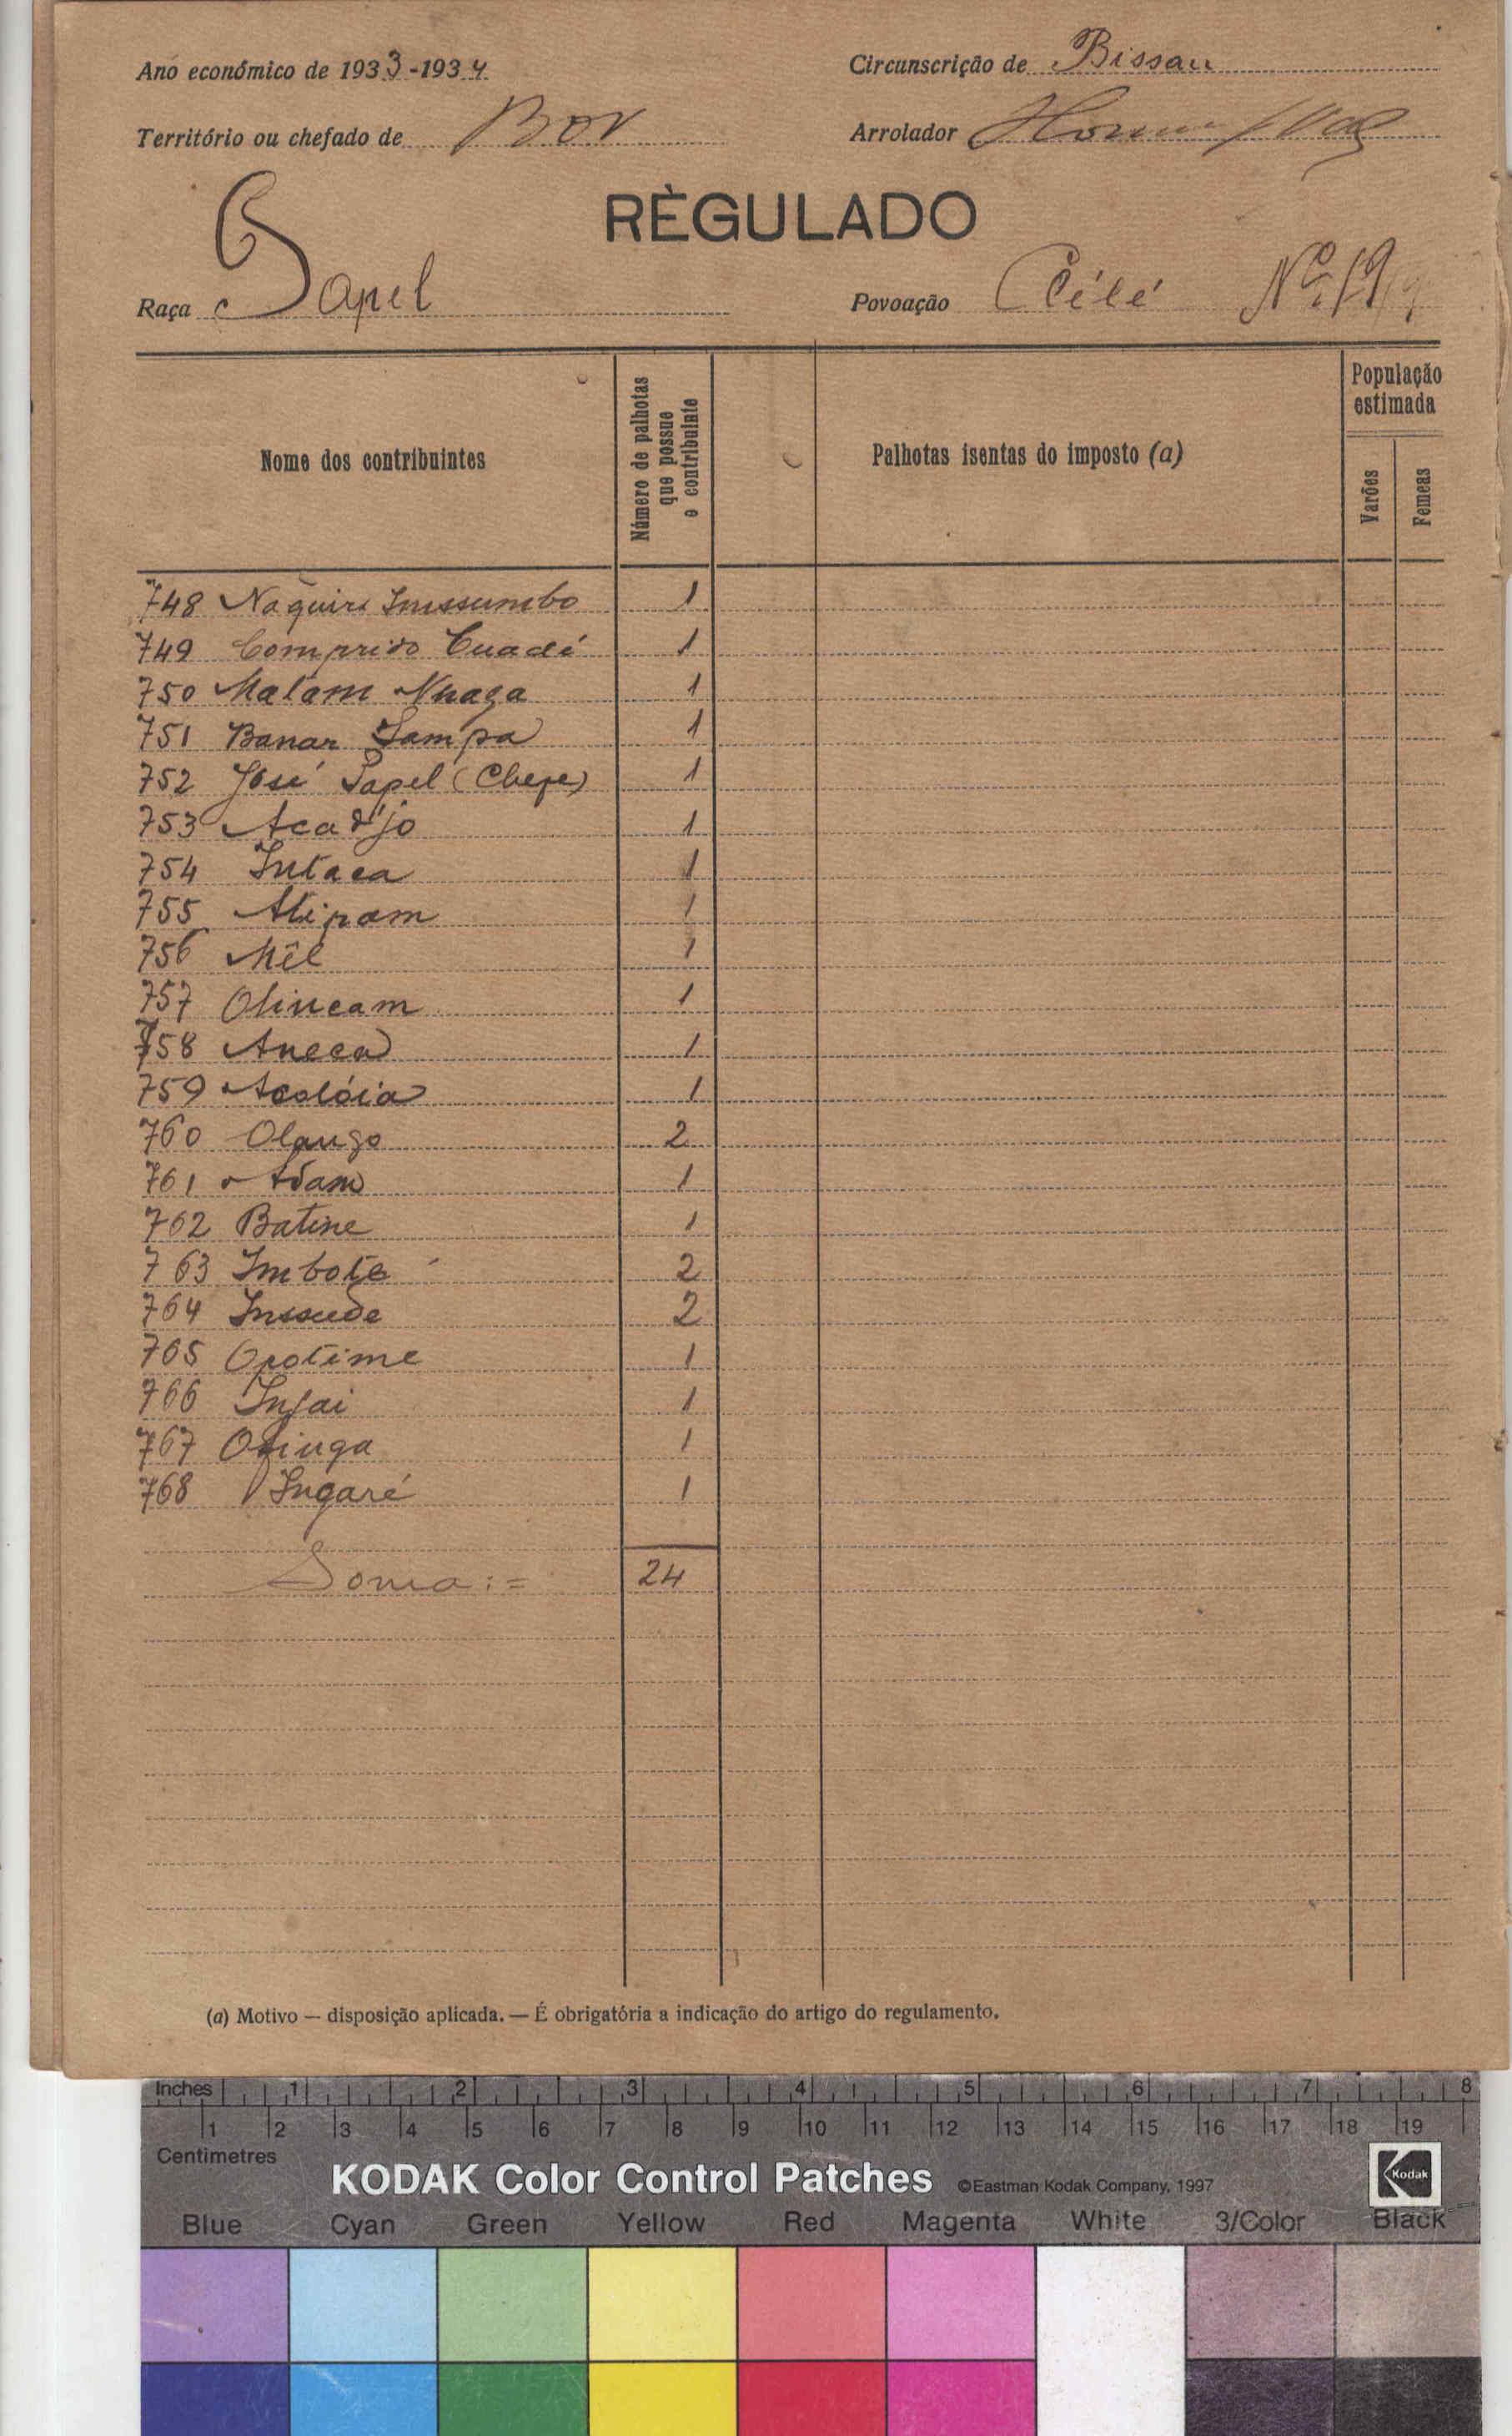 Ano económico de 1933-1934 Circunscrição de Bissau
Território ou chefado de Bor Arrolador
RÈGULADO
Raça Papel Povoação Célé Nº 19
Nome dos contribuintes Número de palhotas que possue o contribuinte Palhotas isentas do imposto (a) População estimada Varões Femeas
748 Naquire Inssumbo 1
749 Comprido Cuadé 1
750 Malam Nhaga 1
751 Banar Sampa 1
752 José Papel (Chefe) 1
753 Acadjo 1
754 Intaca 1
755 Alipam 1
756 Mêl 1
757 Olincam 1
758 Aneca 1
759 Acolóia 1
760 Olango 2
761 Adam 1
762 Batine 1
763 Imbote 2
764 Inssude 2
765 Opotime 1
766 Injai 1
767 1
768 Ingaré 1
Soma:= 24
(a) Motivo — disposição aplicada. — É obrigatória a indicação do artigo do regulamento.
Inches 1 2 3 4 5 6 7 8
1 2 3 4 5 6 7 8 9 10 11 12 13 14 15 16 17 18 19
Centimetres
KODAK Color Control Patches ©Eastman Kodak Company, 1997 Kodak
Blue Cyan Green Yellow Red Magenta White 3/Color Black